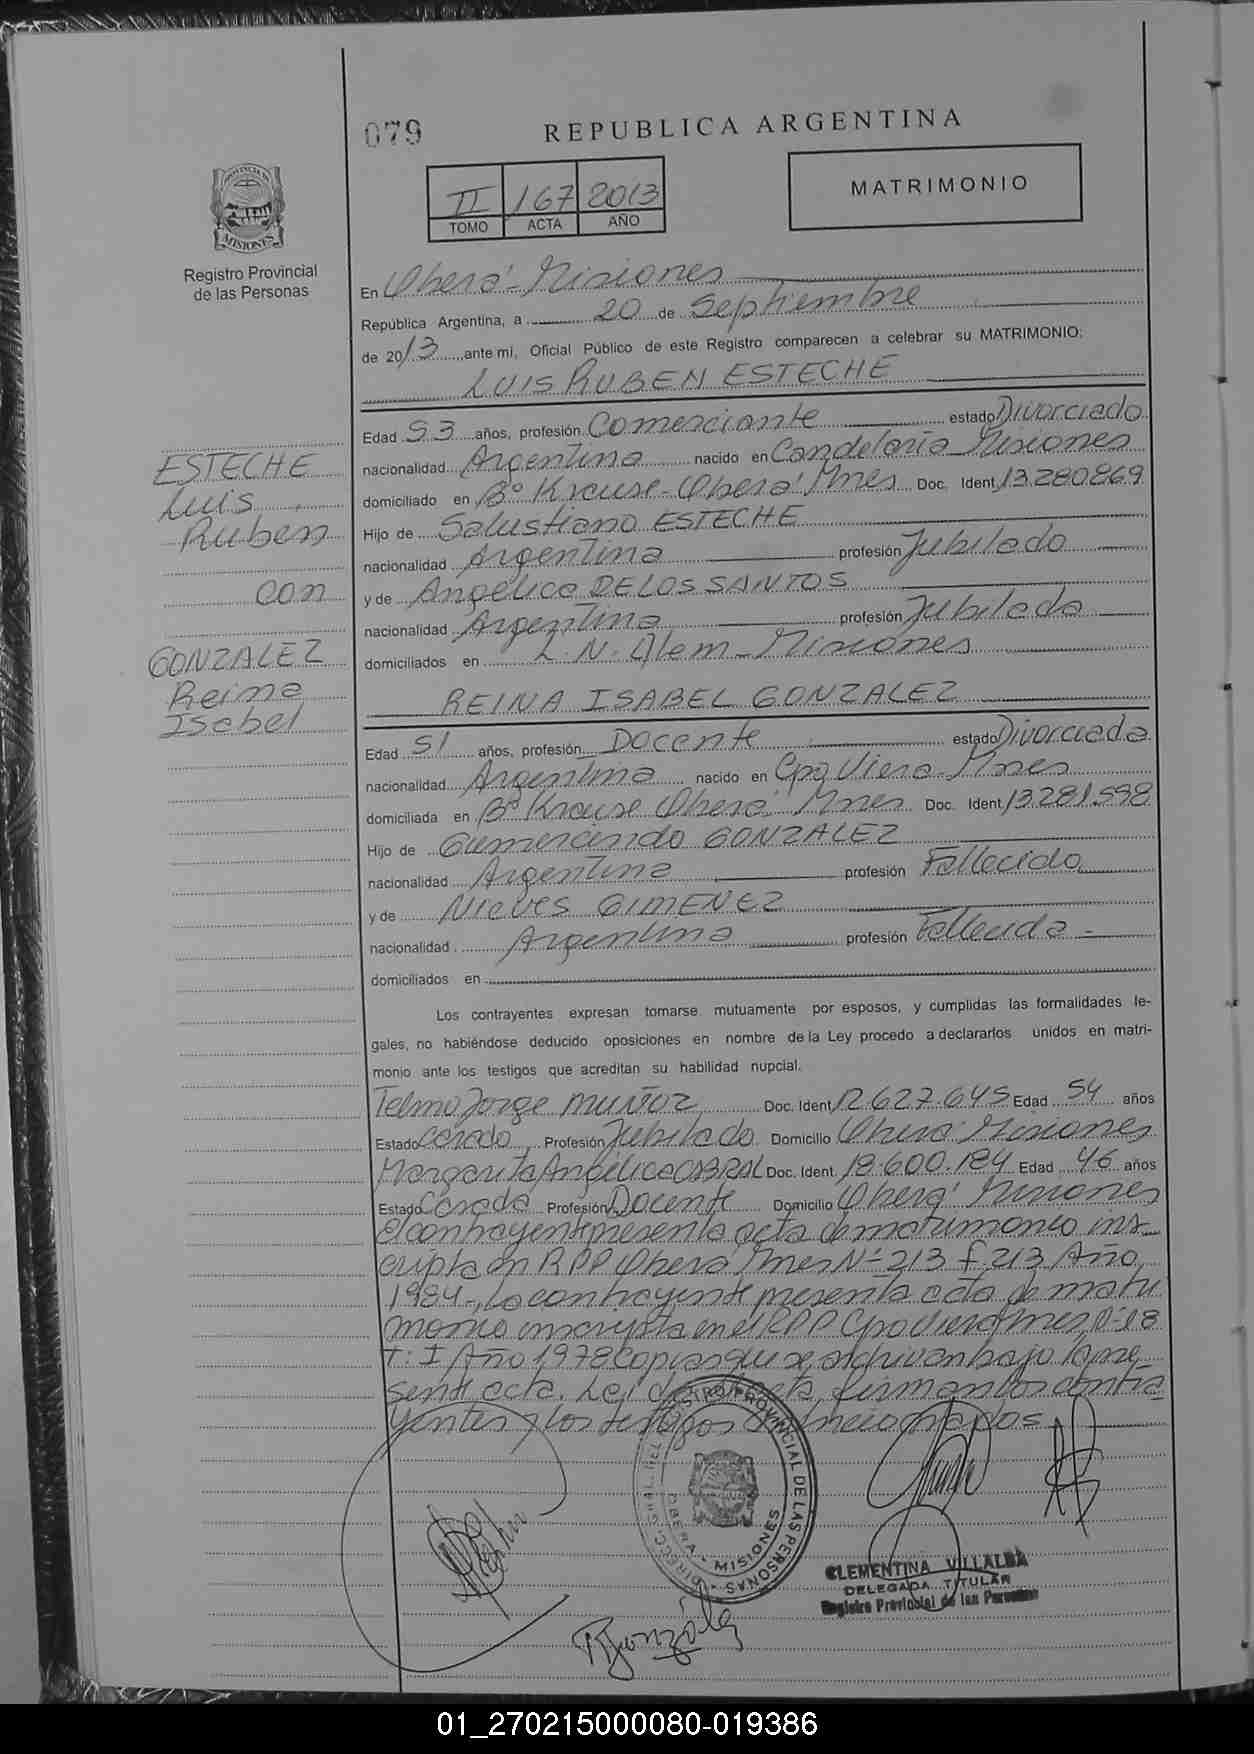 079
REPUBLICA ARGENTINA
II 167 2013
TOMO ACTA AÑO
MATRIMONIO
PROVINCIA DE
MISIONES
Registro Provincial
de las Personas
En Oberá - Misiones
República Argentina, a 20 de Septiembre
de 2013 ante mi, Oficial Público de este Registro comparecen a celebrar su MATRIMONIO:
LUIS RUBEN ESTECHE
Edad 53 años, profesión Comerciante estado Divorciado
nacionalidad Argentina nacido en Candelaria Misiones
domiciliado en Bº Krause - Oberá Mnes Doc. Ident 13280869
Hijo de Salustiano ESTECHE
nacionalidad Argentina profesión Jubilado
y de Angelica DE LOS SANTOS
nacionalidad Argentina profesión Jubilada
domiciliados en L.N. Alem - Misiones
ESTECHE
Luis
Ruben
con
GONZALEZ
Reina
Isabel
REINA ISABEL GONZALEZ
Edad 51 años, profesión Docente estado Divorciada
nacionalidad Argentina nacido en Cpo Viera - Mnes
domiciliada en Bº Krause Oberá Mnes Doc. Ident 13281598
Hijo de Gumercindo GONZALEZ
nacionalidad Argentina profesión Fallecido
y de Nieves GIMENEZ
nacionalidad Argentina profesión Fallecida -
domiciliados en
Los contrayentes expresan tomarse mutuamente por esposos, y cumplidas las formalidades le-
gales, no habiéndose deducido oposiciones en nombre de la Ley procedo a declararlos unidos en matri-
monio ante los testigos que acreditan su habilidad nupcial.
Telmo Jorge MUÑOZ Doc. Ident 12627.645 Edad 54 años
Estado Casado Profesión Jubilado Domicilio Oberá Misiones
Margarita Angélica CABRAL Doc. Ident. 18.600.184 Edad 46 años
Estado Casada Profesión Docente Domicilio Oberá Misiones
El contrayente presenta acta de matrimonio ins-
cripta en RPP Oberá Mnes Nº 213 f 213 Año
1984-, La contrayente presenta acta de matri
monio inscripta en el RPP Cpo Viera Mnes Nº 18
T: I Año 1978 copias que se archivan bajo la pre-
sente acta. Leida el acta, firman los contra
yentes y los testigos mencionados
DIRECC. GRAL. DEL REGISTRO PROVINCIAL DE LAS PERSONAS
OBERA - MISIONES
CLEMENTINA VILLALBA
DELEGADA TITULAR
Registro Provincial de las Personas
RGonzalez
01_270215000080-019386